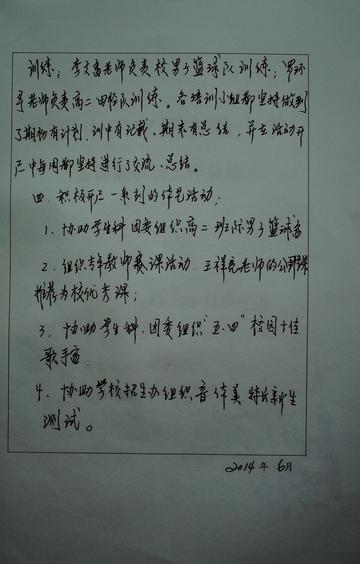 训练；李文富老师负责校男子篮球队训练；罗环
宇老师负责高二田径队训练。各培训小组都坚持做到
了期初有计划、训中有记载、期末有总结，并在活动开
展中每周都坚持进行了交流、总结。
四、积极开展一系列的体艺活动：
1、协助学生科、团委组织高二班际男子篮球赛
2、组织青年教师赛课活动，王祥亮老师的公开课
推荐为校优秀课；
3、协助学生科、团委组织“五·四”校园十佳
歌手赛
4、协助学校招生办组织音体美特长新生
测试。
2014年6月